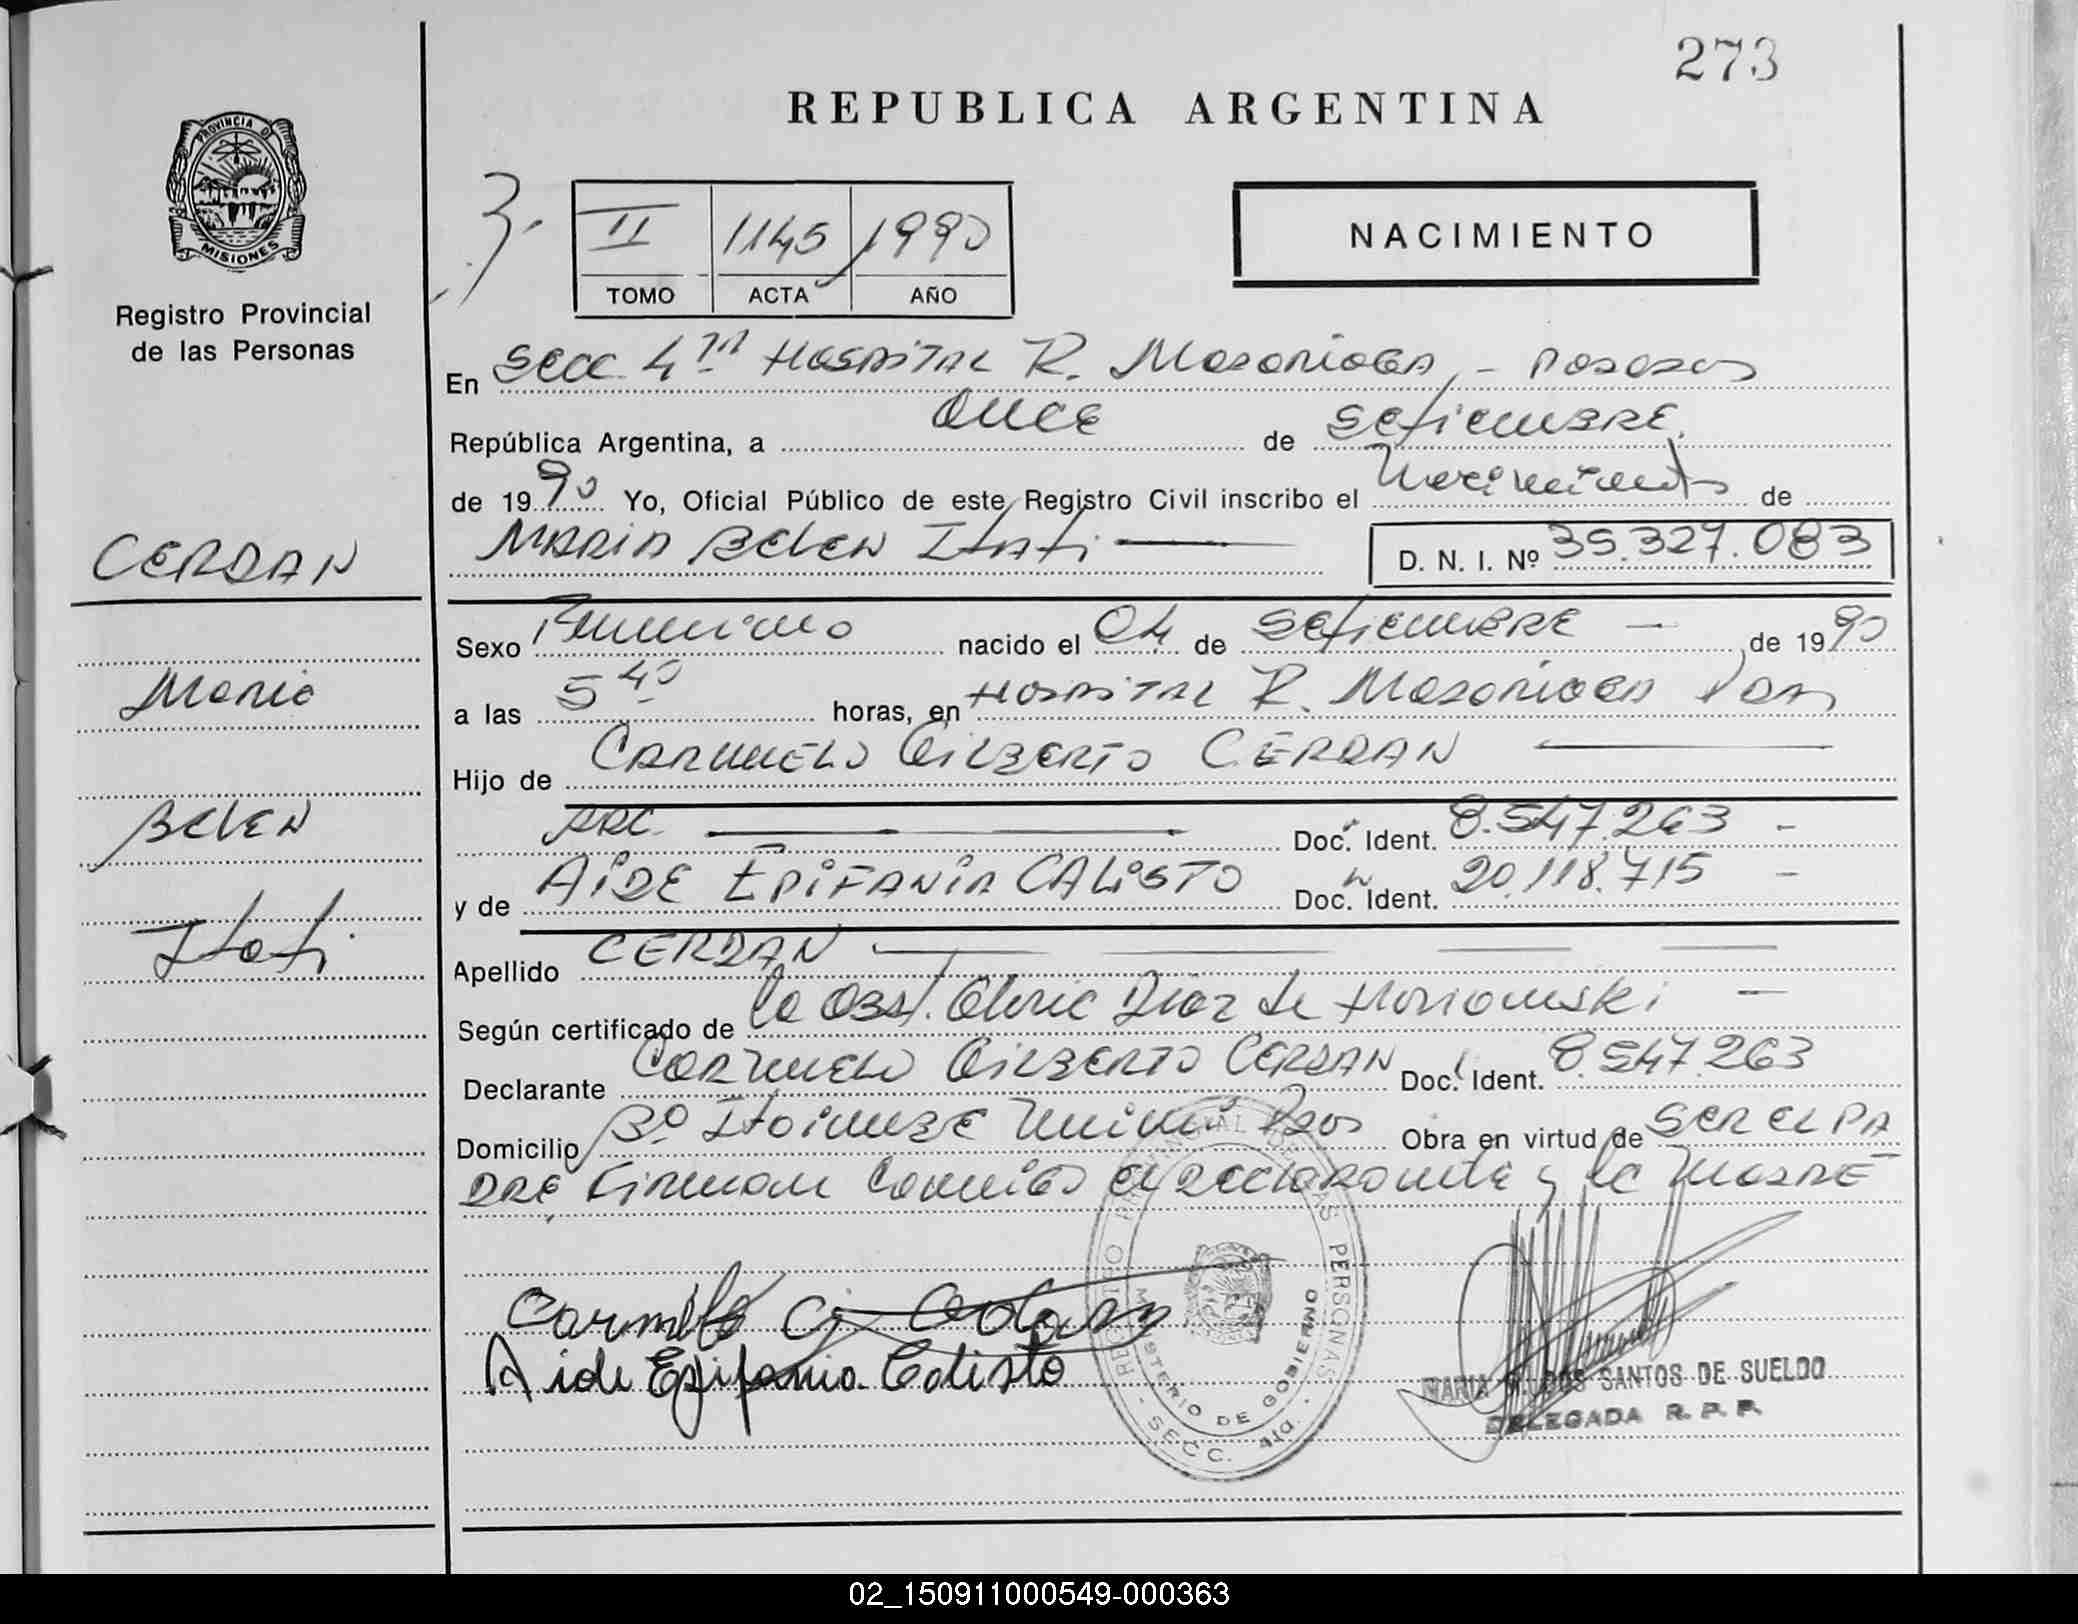 273
REPUBLICA ARGENTINA
PROVINCIA D
MISIONES
Registro Provincial
de las Personas
3.
II 1145 1990
TOMO ACTA AÑO
NACIMIENTO
En Secc. 4ta Hospital R. Madariaga, - Posadas
República Argentina, a once de Setiembre
de 1990 Yo, Oficial Público de este Registro Civil inscribo el Nacimiento de
Maria Belen Itati
D. N. I. Nº 35.327.083
CERDAN
Maria
Belen
Itati
Sexo Femenino nacido el 04 de Setiembre - de 1990
a las 5 40 horas, en Hospital R. Madariaga Pdas
Hijo de Carmelo Gilberto CERDAN
ARG. Doc. Ident. 8.547.263 -
y de AIDE EPIFANIA CALISTO Doc. Ident. 20.118.715 -
Apellido CERDAN
Según certificado de la Obst. Diaz de -
Declarante Carmelo Gilberto Cerdan Doc. Ident. 8.547.263
Domicilio Bº Itaimbe Mini Pdas Obra en virtud de ser el pa
dre, Firman conmigo el declarante y la madre
Aide Epifania Calisto
REGISTRO PROVINCIAL DE LAS PERSONAS
MINISTERIO DE GOBIERNO
SECC. 4ta.
MARIA DOS SANTOS DE SUELDO
DELEGADA R. P. P.
02_150911000549-000363